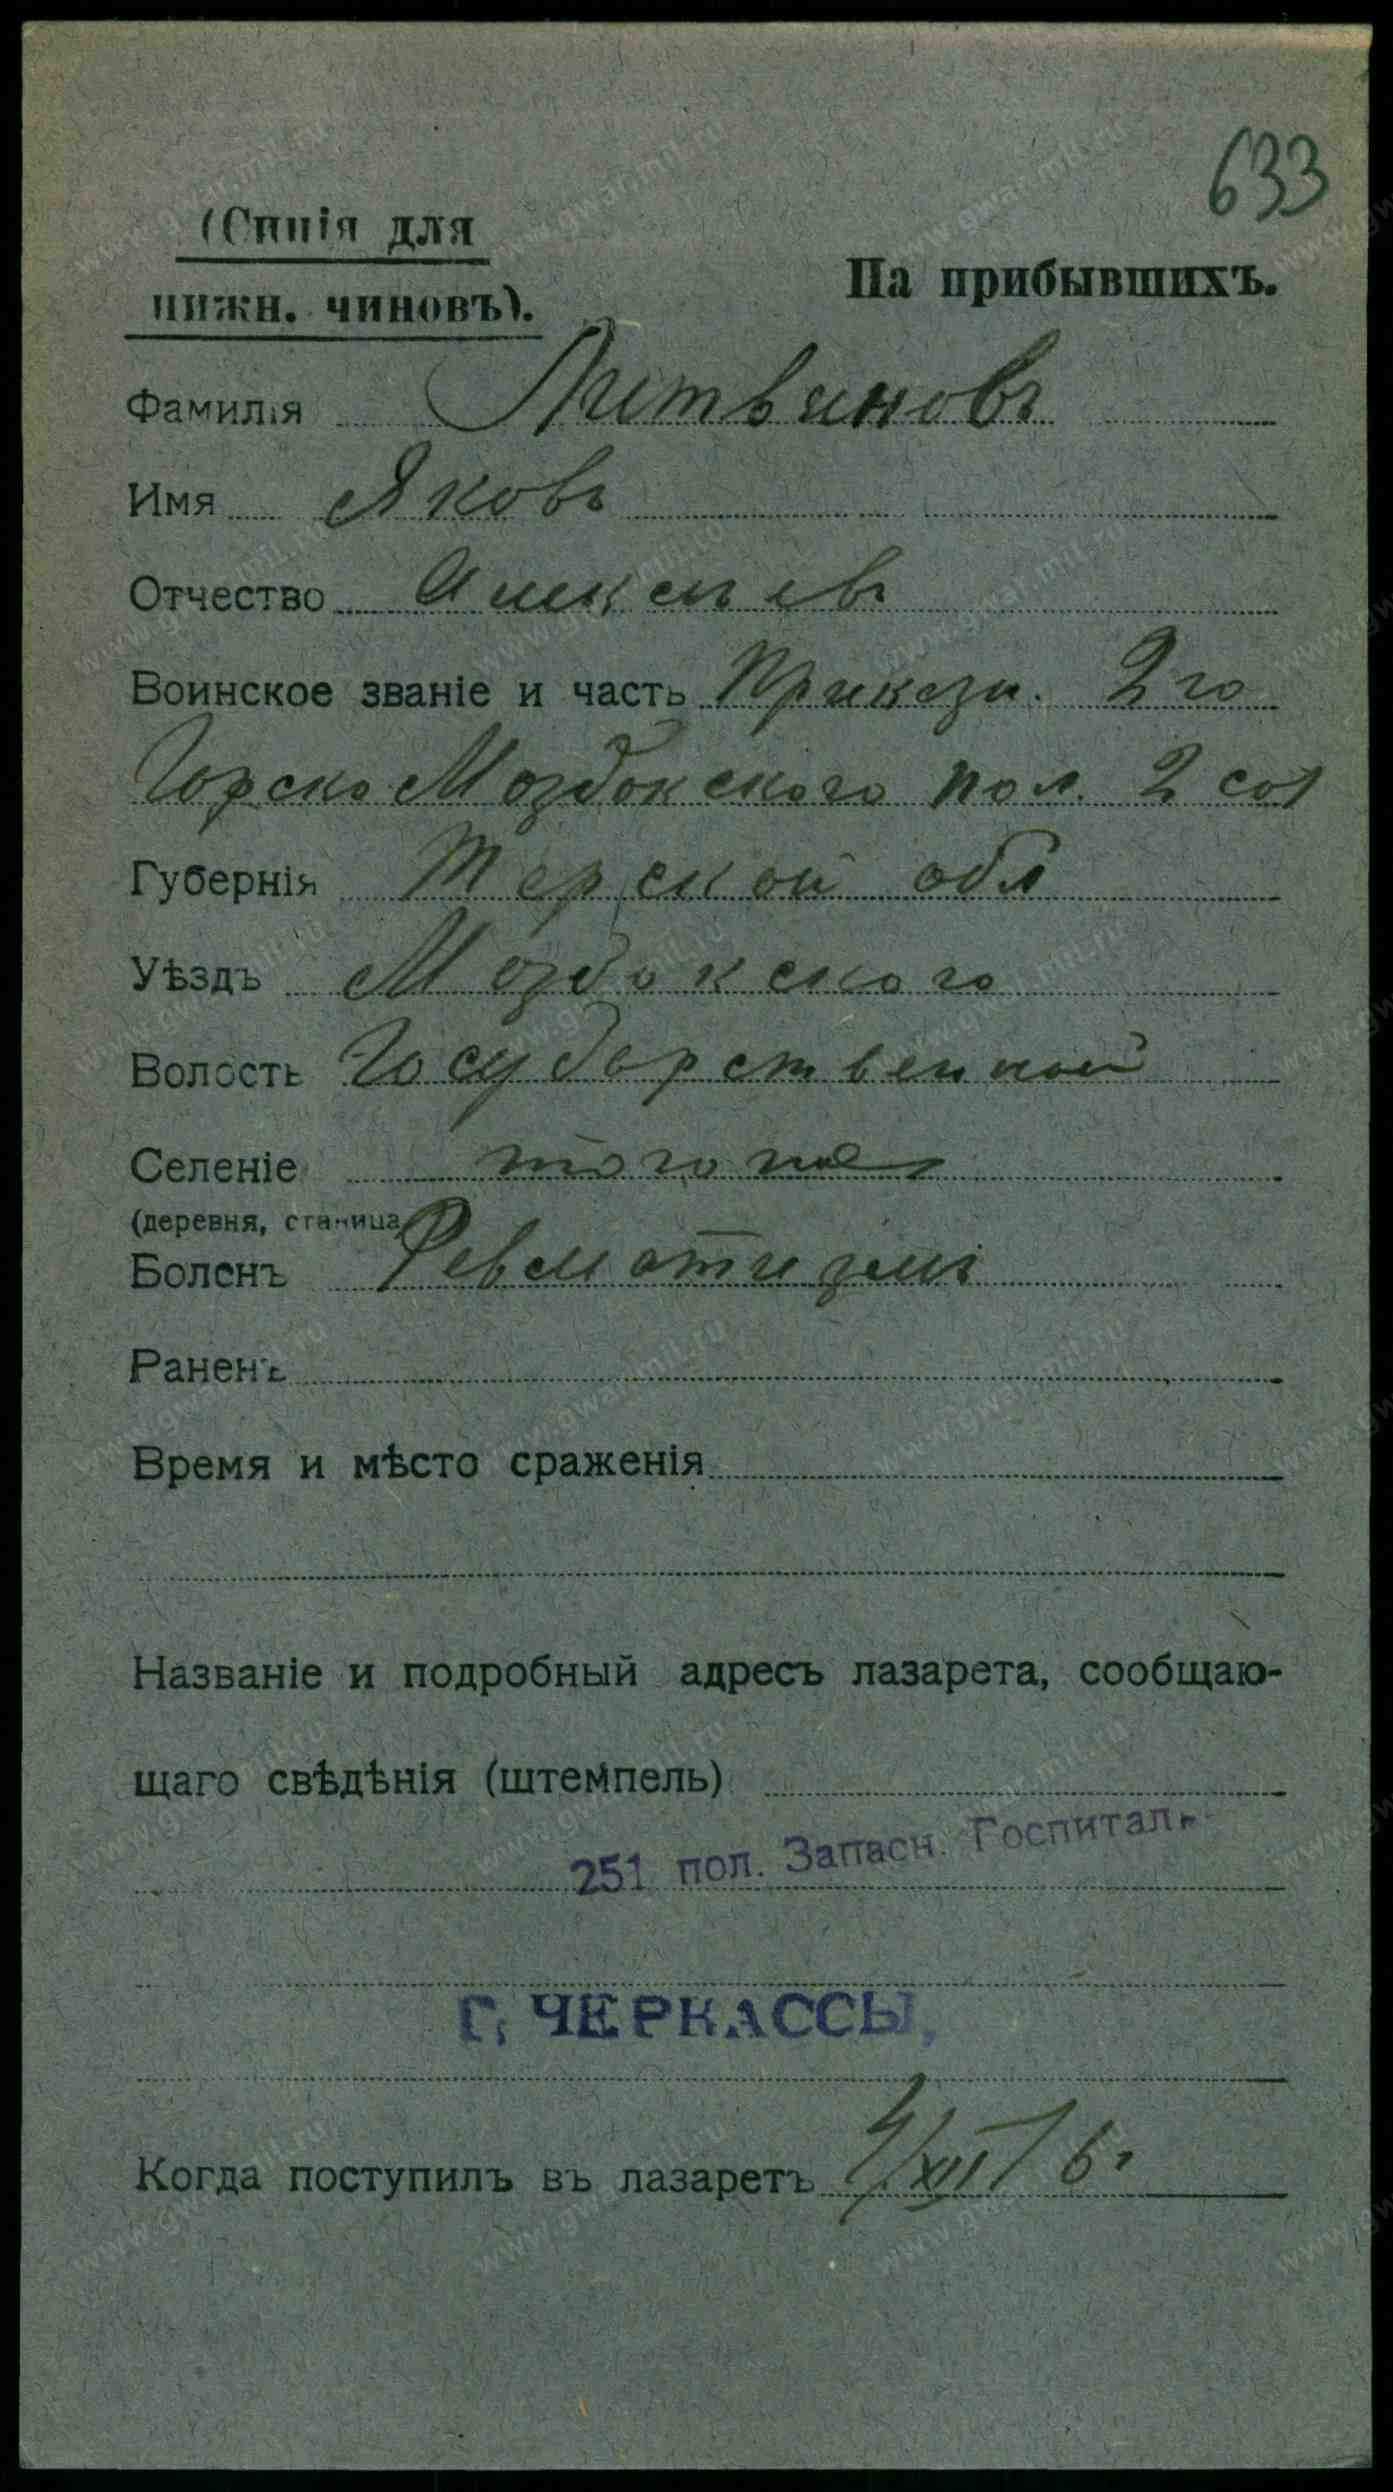 633
(Синія для
нижн. чиновъ).
На прибывшихъ.
Фамилія Литвиновъ
Имя Яковъ
Отчество Алексѣевъ
Воинское званіе и часть Приказн. 2го
Горско Моздокского пол. 2 сот
Губернія Терской обл
Уѣздъ Моздокского
Волость Государственной
Селеніе того же
(деревня, станица)
Боленъ Ревматизмъ
Раненъ
Время и мѣсто сраженія
Названіе и подробный адресъ лазарета, сообщаю-
щаго свѣдѣнія (штемпель)
251 пол. Запасн. Госпиталь
Г. ЧЕРКАССЫ,
Когда поступилъ въ лазаретъ 4/XII 6г